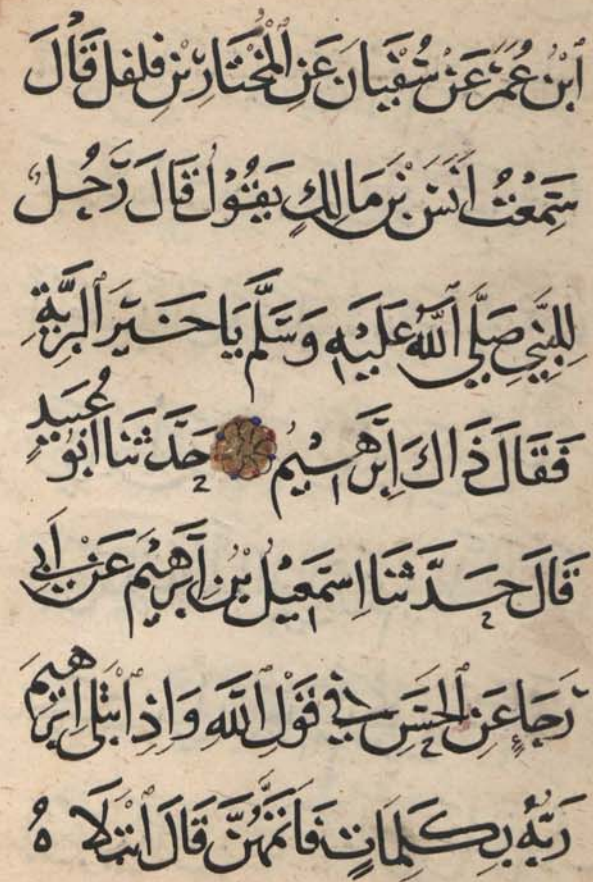 ٱبْنُ عُمَرَ عَنْ سُفْيَانَ عَنِ ٱلْمُخْتَارِ بْنِ فلفل قَالَ
سَمِعْتُ اَنَسَ بْنَ مَالِكٍ يَقُوْلُ قَالَ رَجُلٌ
لِلنَّبِيِّ صَلَّى ٱللَّهُ عَلَيْهِ وَسَلَّمَ يَا خَيْرَ ٱلْبَرِيَّةِ
فَقَالَ ذَاكَ اِبْرَهِيْمُ حَدَّثَنَا اَبُو عُبَيْدٍ
قَالَ حَدَّثَنَا اِسْمَعِيْلُ بْنُ اِبْرَهِيْمَ عَنْ اَبِي
رَجَاءٍ عَنِ الْحَسَنِ فِي قَوْلِ ٱللَّهِ وَاِذِ ٱبْتَلَى اِبْرَهِيْمَ
رَبُّهُ بِكَلِمَاتٍ فَاَتَمَّهُنَّ قَالَ ٱبْتَلَاهُ